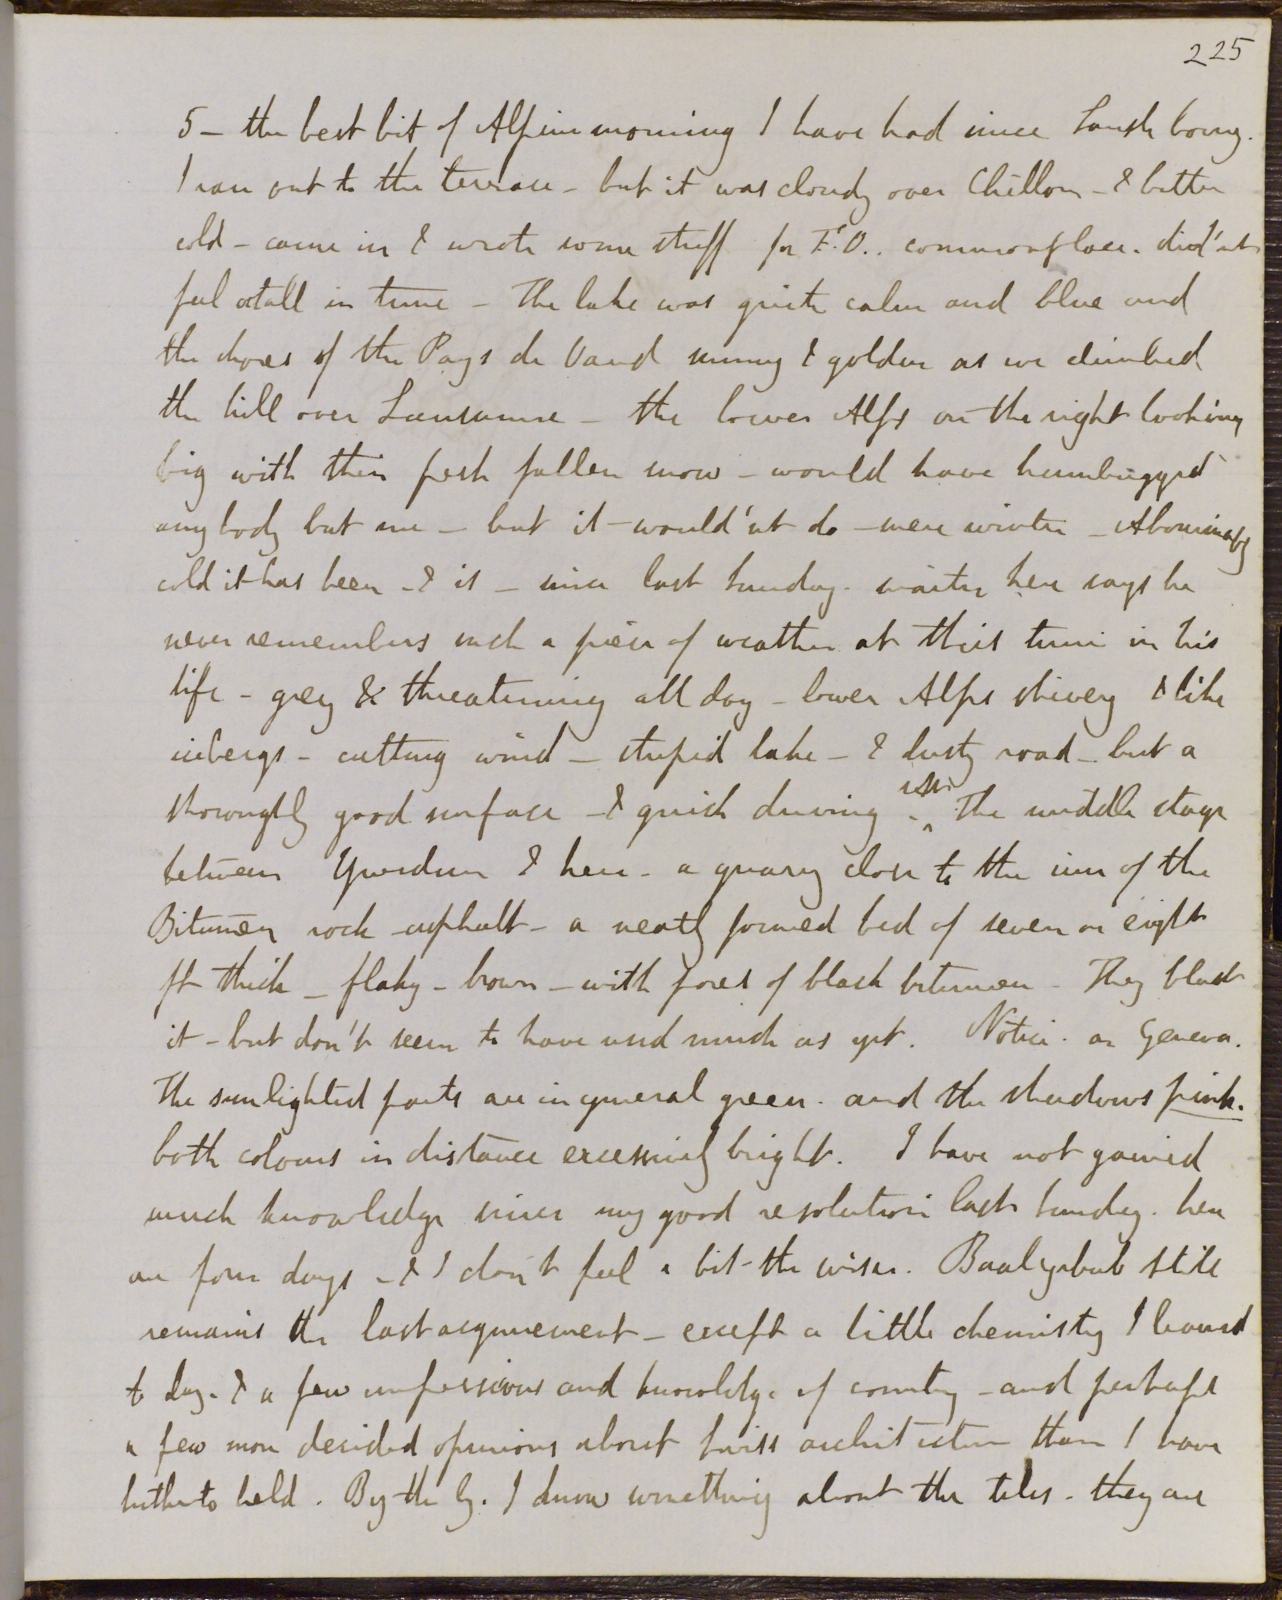 225
5 – the best bit of Alpine morning I have had since Lanslebourg.
I ran out to the terrace – but it was cloudy over Chillon – & bitter
cold – came in & wrote some stuff for F.O.. commonplace. did'nt
feel atall in tune – The lake was quite calm and blue and
the shores of the Pays de Vaud sunny & golden as we climbed
the hill over Lausanne – the lower Alps on the right looking
big with their fresh fallen snow – would have humbugged
anybody but me – but it would'nt do – mere winter – Abominably
cold it has been – & is – since last Sunday. waiter here says he
never remembers such a piece of weather at this time in his
life – grey & threatening all day – lower Alps shivery & like
icebergs – cutting wind – stupid lake – & dusty road – but a
thoroughly good surface – & quick driving . The middle stage
between Yverdun & here – a quarry close to the inn of the
Bitumen rock – asphalt – a neatly formed bed of seven or eight
ft thick – flaky – brown – with pores of black bitumen – They blast
it – but don't seem to have used much as yet. Notice. on Geneva.
The sunlighted parts are in general green. and the shadows pink.
both colours in distance excessively bright. I have not gained
much knowledge since my good resolution last Sunday. here
are four days – & I don't feel a bit the wiser. Baalzebub still
remains the last acquirement – except a little chemistry I learnt
to day. & a few impressions and knowledge of country – and perhaps
a few more decided opinions about Swiss architecture than I have
hitherto held. By the by. I know something about the tiles. they are